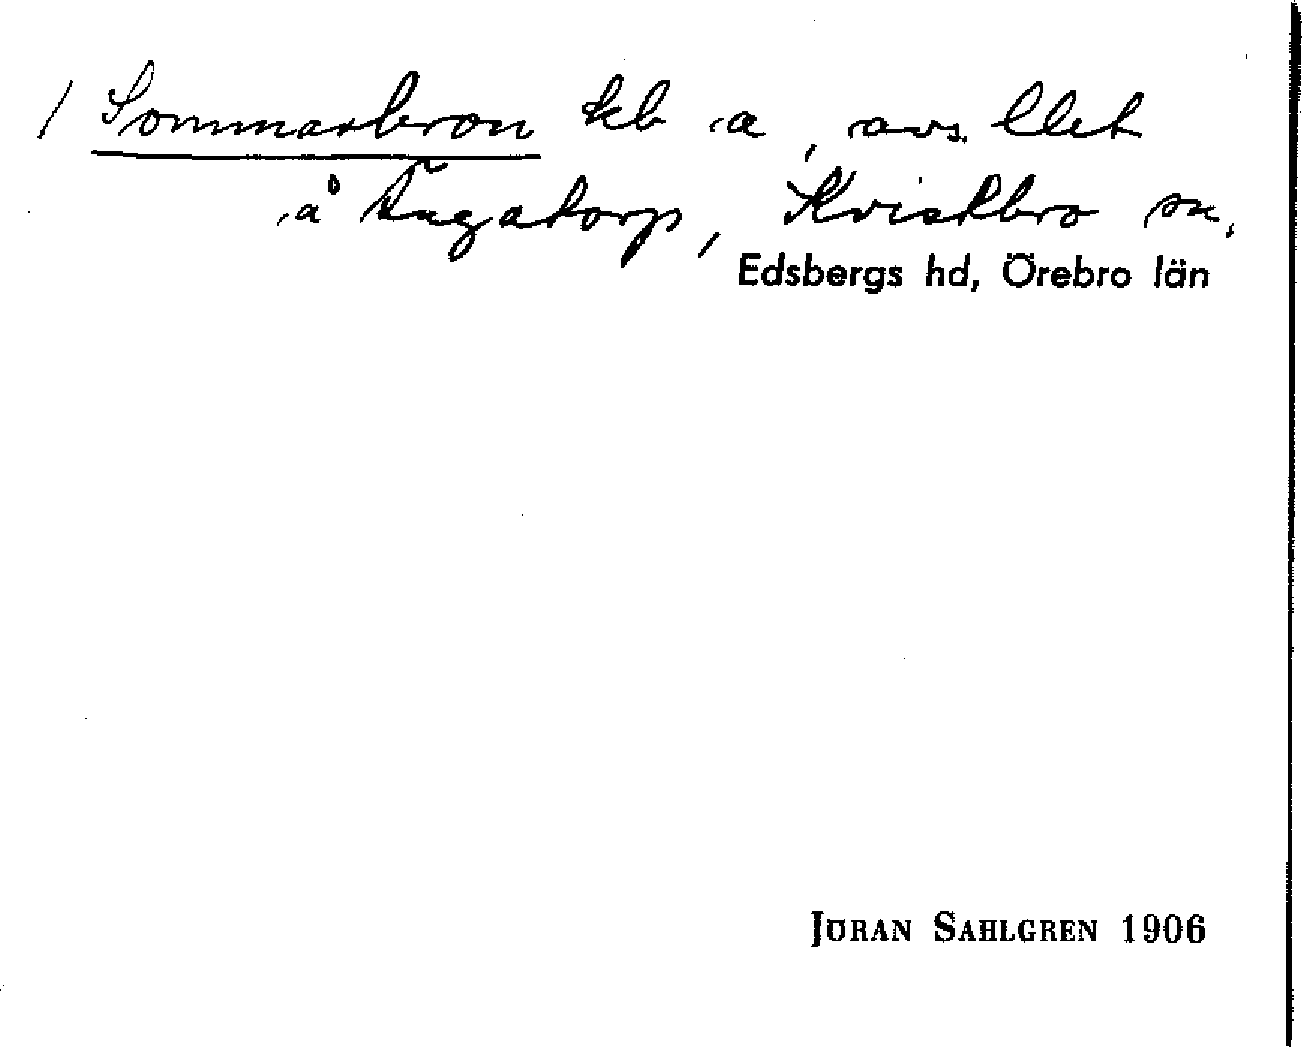 / Sommarbron kb a, avs.
å Fugatorp, Kvistbro sn.
Edsbergs hd, Örebro län
JÖRAN SAHLGREN 1906